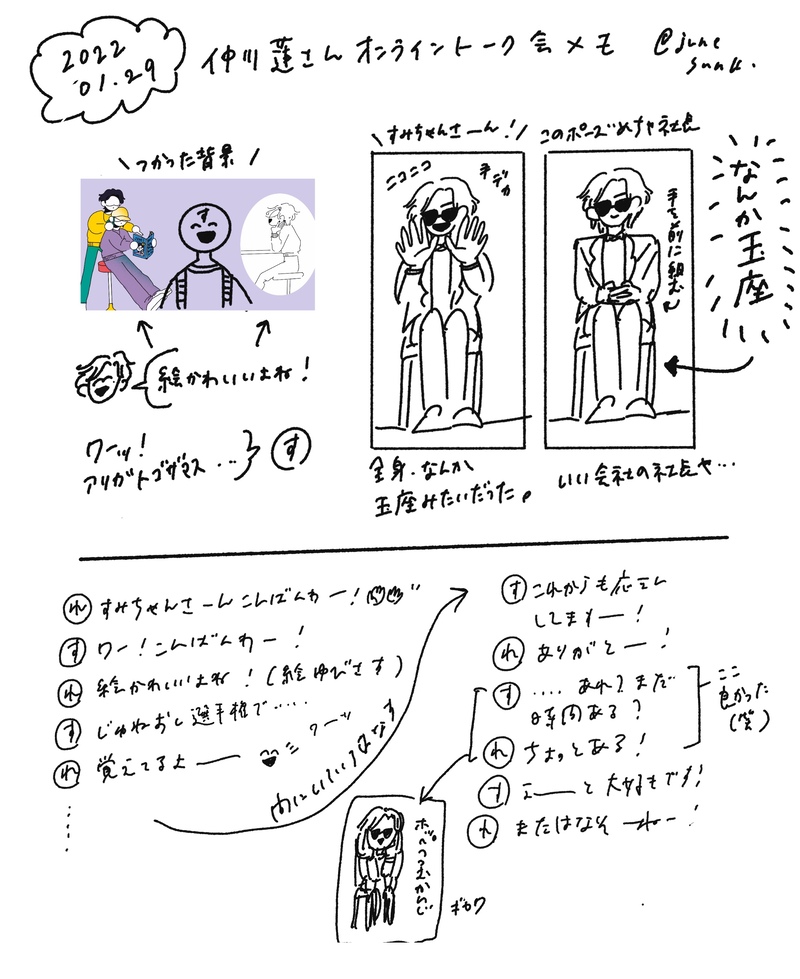 2022
'01.29
仲川蓮さん オンライントーク会メモ
@june
\ つかった背景 /
す
絵かわいいよね!
ワーッ!
アリガトゴザマス...
す
\ すみちゃんさーん! /
ニコニコ
手デカ
全身、なんか
玉座みたいだった。
このポーズめちゃ社長
手を前に組む
いい会社の社長や…
なんか玉座
れ すみちゃんさーんこんばんわー!
す ワー!こんばんわー!
れ 絵かわいいよね!(絵ゆびさす)
す じゅねおし選手権で……
れ 覚えてるよ——
ワーッ
す これからも応エン
してます——!
れ ありがと——!
す .... あれ?まだ
時間ある?
れ ちょっとある!
す え——と大好きです!
れ またはなそーねー!
ここ
良かった
(笑)